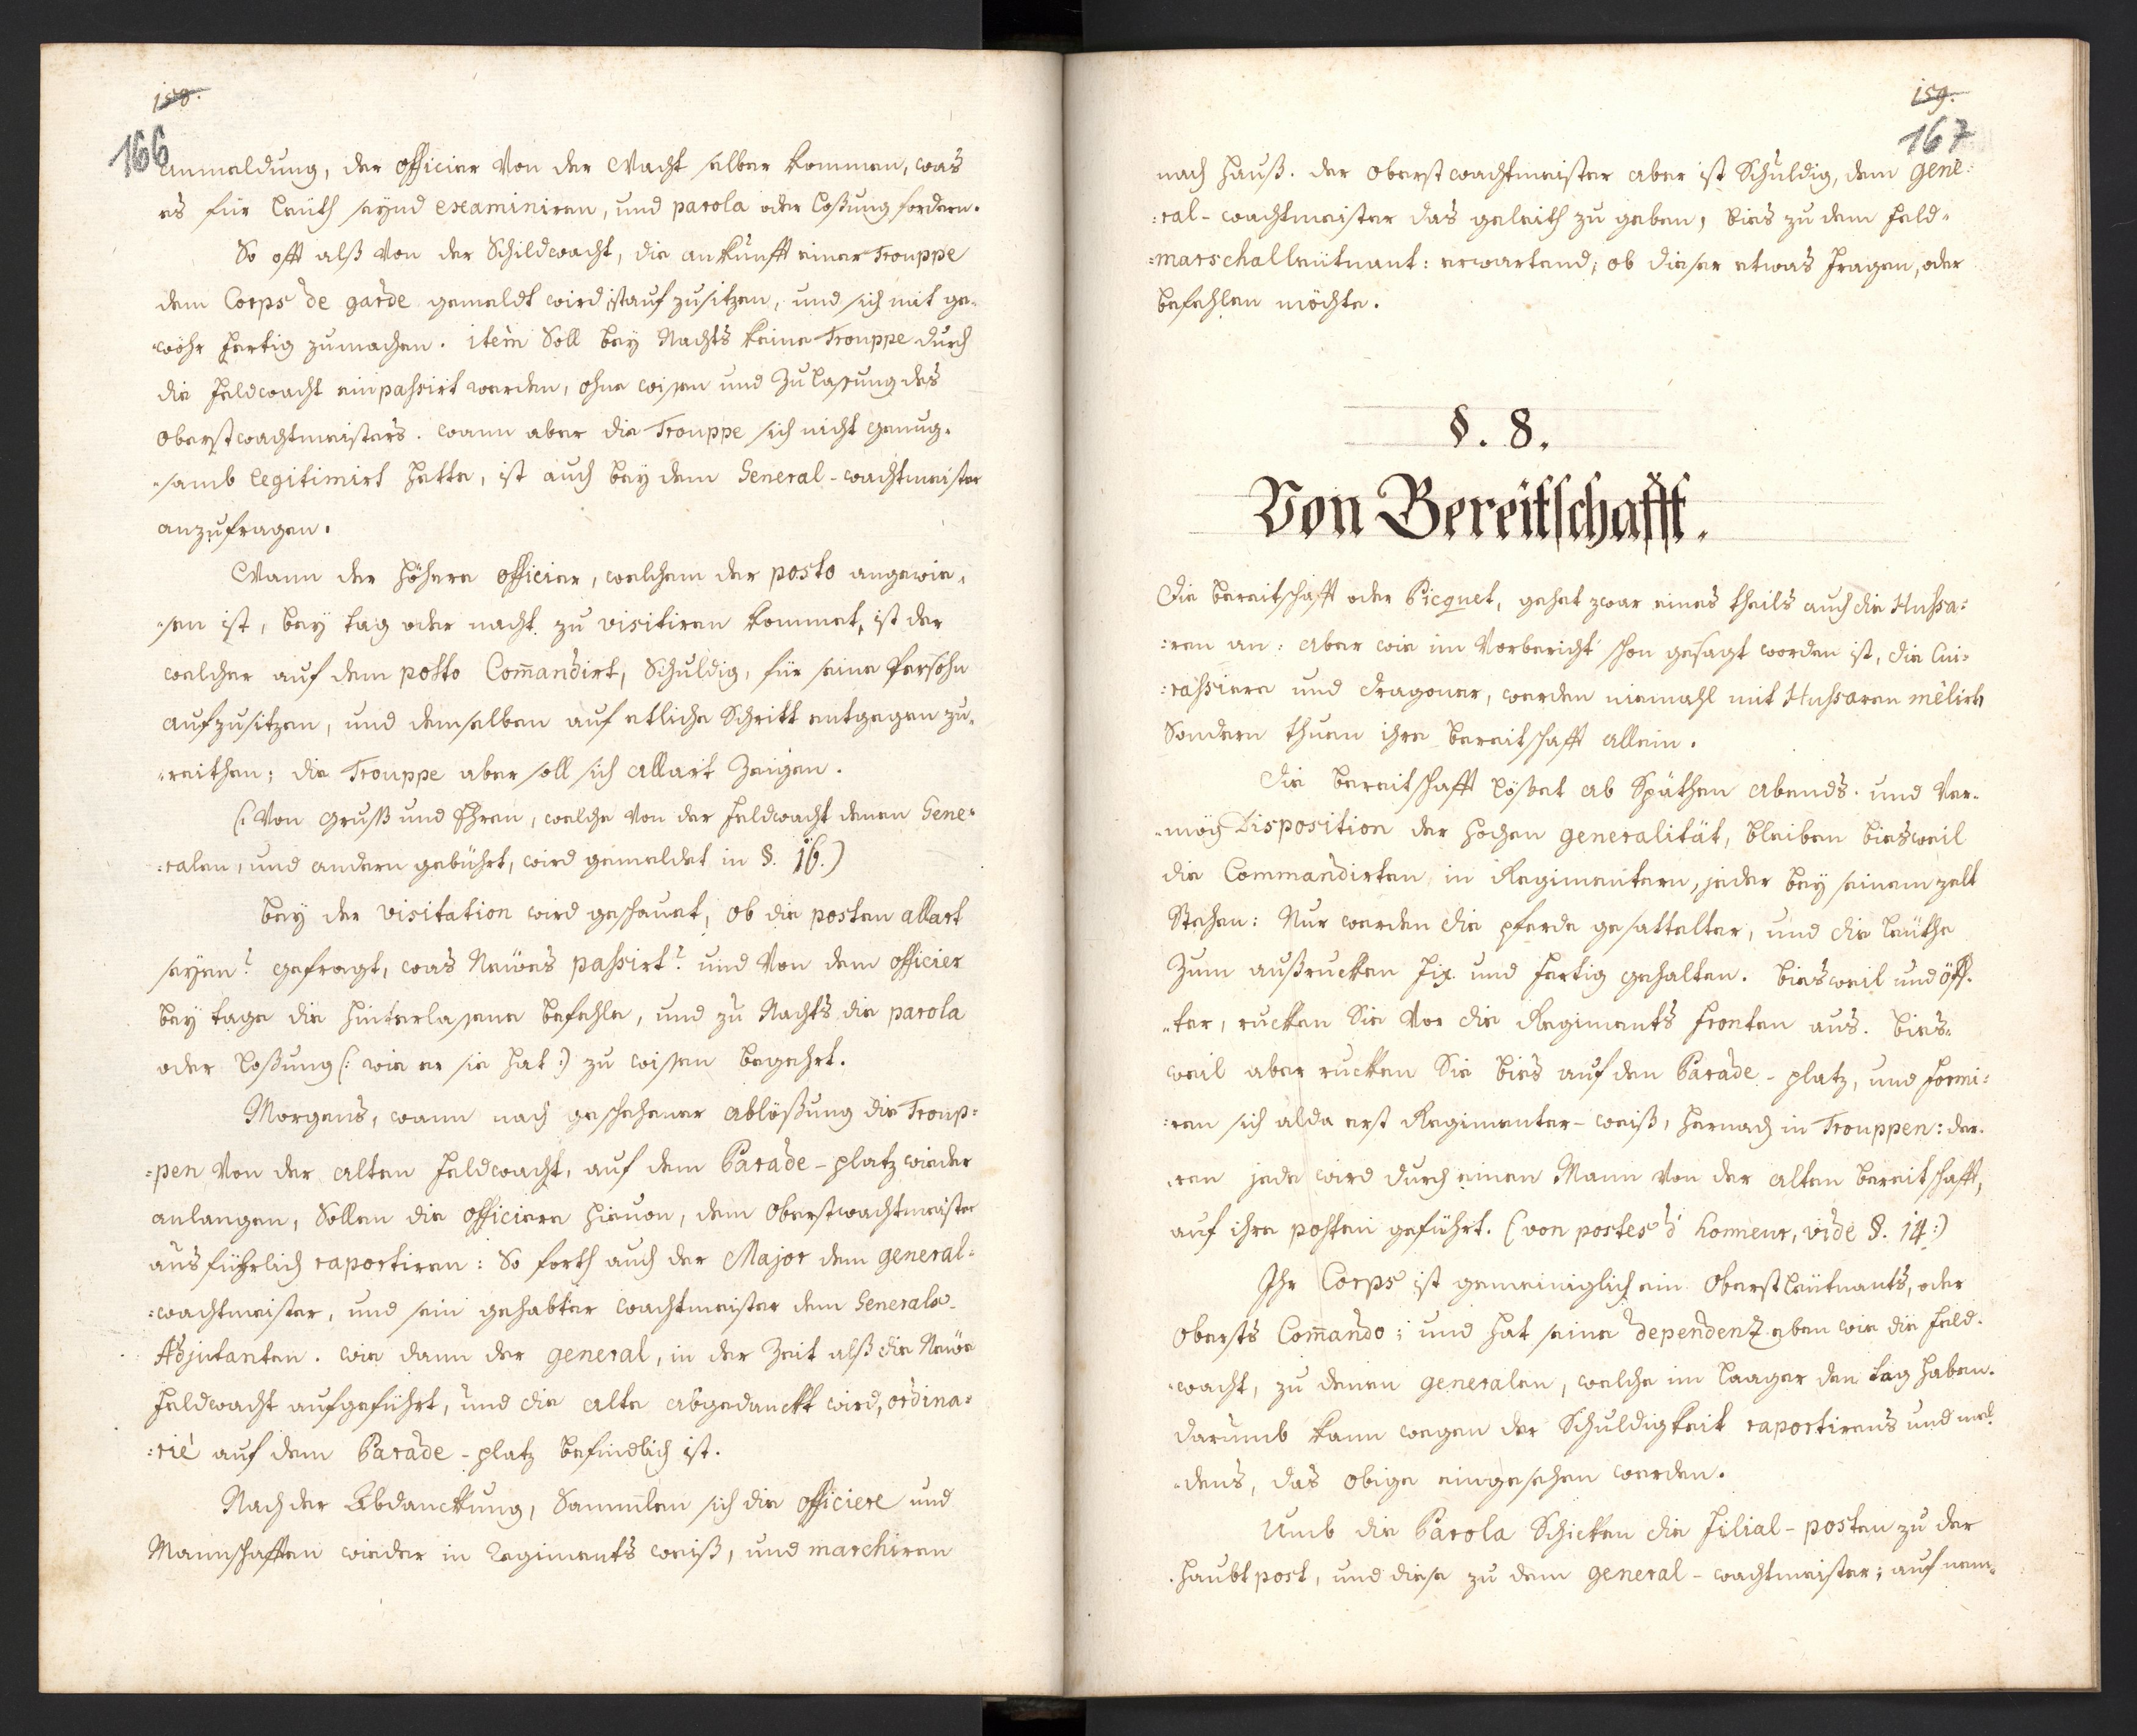 158.
166
anmeldung, der officier Von der Wacht selber kommen, was
es für Leüth seynd examiniren, und parola oder Loßung fordern.
So offt alß Von der Schildwacht, die ankunfft einer Trouppe
dem Corps de garde gemeldt wird, ist aufzusitzen, und sich mit ge-
wöhr fertig zumachen. item Soll bey Nachts keine Trouppe durch
die Feldwacht einpassirt werden, ohne wissen und Zulassung des
Oberstwachtmeisters. wann aber die Trouppe sich nicht genug-
-samb legitimirt hette, ist auch bey dem General-wachtmeister
anzufragen.
Wann der höhere officier, welchem der posto angewie-
-sen ist, bey tag oder nacht zu visitiren kommet, ist der
welcher auf dem posto Com̄andirt, Schuldig, für seine Persohn
aufzusitzen, und demselben auf etliche Schritt entgegen zu-
-reithen; die Trouppe aber soll sich allart Zeigen.
(: Von Gruß und Ehren, welche Von der Feldwacht denen Gene-
:ralen, und andern gebührt, wird gemeldet in §. 16.)
bey der visitation wird geschauet, ob die posten allart
seyen? gefragt, was Neües passirt? und Von dem officier
bey tage die hinterlassene befehle, und zu Nachts die parola
oder Loßung (: wie er sie hat :) zu wissen begehrt.
Morgens, wann nach geschehener ablößung die Troup=
=pen Von der alten Feldwacht, auf dem Parade-platz wieder
anlangen, Sollen die officiere hievon, dem Oberstwachtmeister
ausführlich raportiren: So forth auch der Major dem general=
:wachtmeister, und sein gehabter wachtmeister dem Generals-
Adjutanten. wie dann der general, in der Zeit alß die Neüe
Feldwacht aufgeführt, und die alte abgedanckt wird, ordina=
:rié auf dem Parade-platz befindlich ist.
Nach der Abdanckung, Sammlen sich die officiere und
Mannschafften wieder in Regiments weiß, und marchiren
159.
167
nach Hauß. der Oberstwachtmeister aber ist Schuldig, dem gene:
:ral-wachtmeister das geleith zu geben, bies zu dem Feld-
=marschalleütnant: erwartend; ob dieser etwas fragen, oder
befehlen möchte.
§. 8.
Von Bereitschafft.
Die bereitschafft oder Picquet, gehet zwar eines theils auch die Hussa:
:ren an: aber wie im Vorbericht schon gesagt worden ist, die Cui-
:rassiere und dragoner, werden niemahl mit Hussaren mêlirt
Sondern thuen ihre bereitschafft allein.
Die bereitschafft Lößet ab Späthen abends. und Ver-
-mög Disposition der hochen generalität, bleiben biesweil
die Commandirten in Regimentern, jeder bey seinem zelt
Stehen: Nur werden die pferde gesattelter, und die Leüthe
Zum außrucken fix und fertig gehalten. biesweil und öff-
-ter, rucken Sie Vor die Regiments fronten aus. bies-
weil aber rucken Sie bies auf den Parade-platz, und formi:
:ren sich alda erst Regimenter-weiß, hernach in Trouppen: der-
-ren jede wird durch einen Mann Von der alten bereitschafft,
auf ihre posten geführt. (von postes d' honneur, vide §. 14:)
Ihr Corps ist gemeiniglich ein Oberstleütnants, oder
Obersts Com̄ando; und hat seine dependenz eben wie die Feld-
-wacht, zu denen generalen, welche im Laager den tag haben.
darumb kann wegen der Schuldigkeit raportirens und mel-
-dens, das obige eingesehen werden.
Umb die Parola Schicken die Filial-posten zu der
Haubtpost, und diese zu dem general-wachtmeister; auf nem-